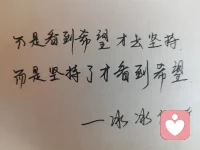 不是看到希望才去坚持
而是坚持了才看到希望
—冰冰